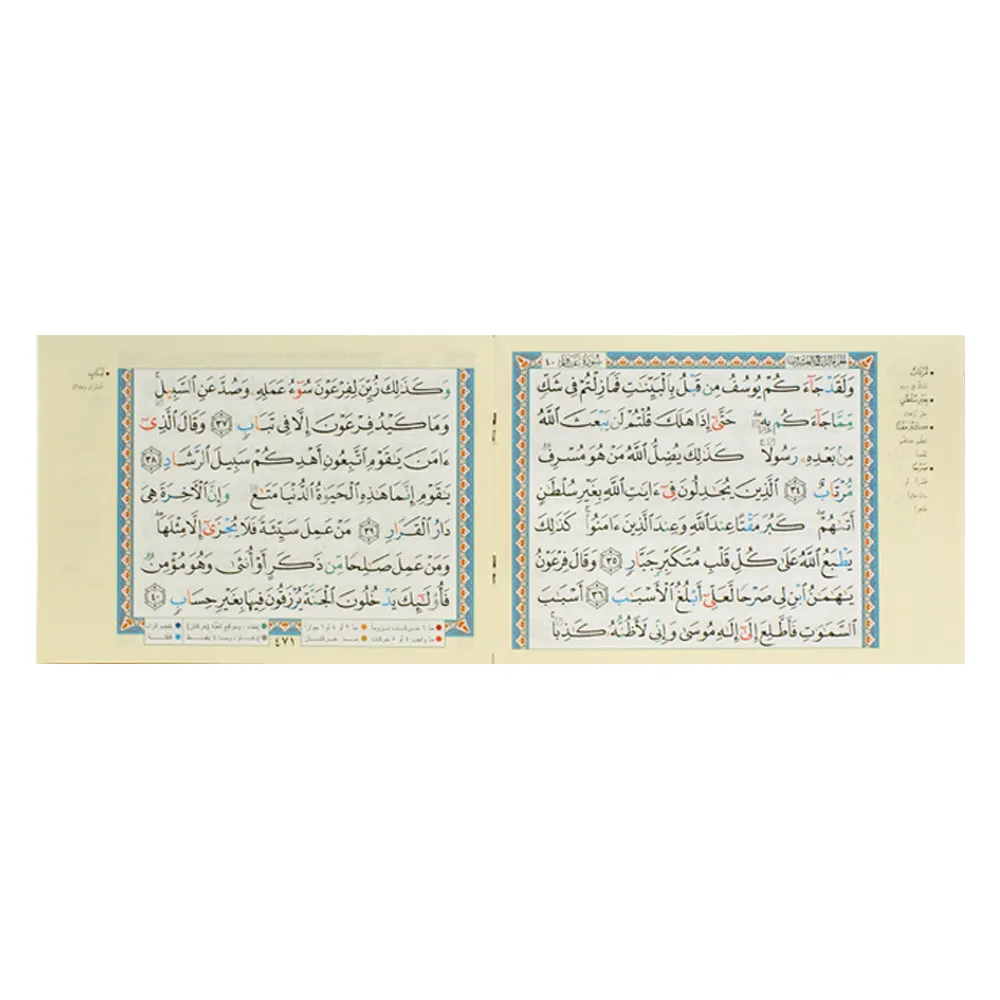 سورة غافر ٤٠
الجزء الرابع والعشرون
وَلَقَدْ جَآءَكُمْ يُوسُفُ مِن قَبْلُ بِٱلْبَيِّنَٰتِ فَمَا زِلْتُمْ فِى شَكٍّ
مِّمَّا جَآءَكُم بِهِۦ ۖ حَتَّىٰٓ إِذَا هَلَكَ قُلْتُمْ لَن يَبْعَثَ ٱللَّهُ
مِنۢ بَعْدِهِۦ رَسُولًا ۚ كَذَٰلِكَ يُضِلُّ ٱللَّهُ مَنْ هُوَ مُسْرِفٌ
مُّرْتَابٌ ٣٤ ٱلَّذِينَ يُجَٰدِلُونَ فِىٓ ءَايَٰتِ ٱللَّهِ بِغَيْرِ سُلْطَٰنٍ
أَتَىٰهُمْ ۖ كَبُرَ مَقْتًا عِندَ ٱللَّهِ وَعِندَ ٱلَّذِينَ ءَامَنُوا۟ ۚ كَذَٰلِكَ
يَطْبَعُ ٱللَّهُ عَلَىٰ كُلِّ قَلْبِ مُتَكَبِّرٍ جَبَّارٍ ٣٥ وَقَالَ فِرْعَوْنُ
يَٰهَٰمَٰنُ ٱبْنِ لِى صَرْحًا لَّعَلِّىٓ أَبْلُغُ ٱلْأَسْبَٰبَ ٣٦ أَسْبَٰبَ
ٱلسَّمَٰوَٰتِ فَأَطَّلِعَ إِلَىٰٓ إِلَٰهِ مُوسَىٰ وَإِنِّى لَأَظُنُّهُۥ كَٰذِبًا ۚ
مُرْتَابٌ
بِغَيْرِ سُلْطَٰنٍ
كَبُرَ مَقْتًا
صَرْحًا
وَكَذَٰلِكَ زُيِّنَ لِفِرْعَوْنَ سُوٓءُ عَمَلِهِۦ وَصُدَّ عَنِ ٱلسَّبِيلِ ۚ
وَمَا كَيْدُ فِرْعَوْنَ إِلَّا فِى تَبَابٍ ٣٧ وَقَالَ ٱلَّذِىٓ
ءَامَنَ يَٰقَوْمِ ٱتَّبِعُونِ أَهْدِكُمْ سَبِيلَ ٱلرَّشَادِ ٣٨
يَٰقَوْمِ إِنَّمَا هَٰذِهِ ٱلْحَيَوٰةُ ٱلدُّنْيَا مَتَٰعٌ وَإِنَّ ٱلْءَاخِرَةَ هِىَ
دَارُ ٱلْقَرَارِ ٣٩ مَنْ عَمِلَ سَيِّئَةً فَلَا يُجْزَىٰٓ إِلَّا مِثْلَهَا ۖ
وَمَنْ عَمِلَ صَٰلِحًا مِّن ذَكَرٍ أَوْ أُنثَىٰ وَهُوَ مُؤْمِنٌ
فَأُو۟لَٰٓئِكَ يَدْخُلُونَ ٱلْجَنَّةَ يُرْزَقُونَ فِيهَا بِغَيْرِ حِسَابٍ ٤٠
تَبَابٍ
٤٧١